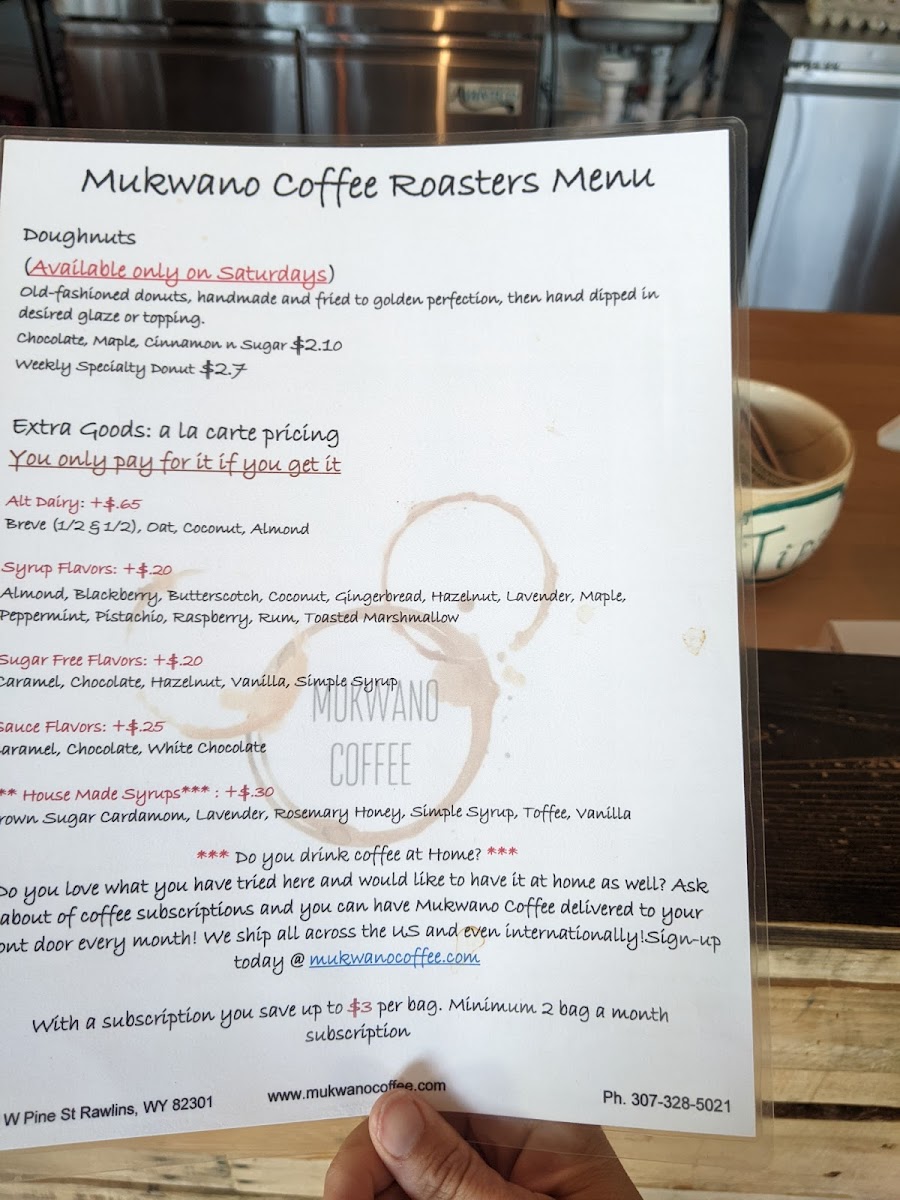 Mukwano Coffee Roasters Menu
Doughnuts
(Available only on Saturdays)
Old-fashioned donuts, handmade and fried to golden perfection, then hand dipped in
desired glaze or topping.
Chocolate, Maple, Cinnamon n Sugar $2.10
Weekly Specialty Donut $2.7
Extra Goods: a la carte pricing
You only pay for it if you get it
Alt Dairy: +$.65
Breve (1/2 & 1/2), Oat, Coconut, Almond
Syrup Flavors: +$.20
Almond, Blackberry, Butterscotch, Coconut, Gingerbread, Hazelnut, Lavender, Maple,
Peppermint, Pistachio, Raspberry, Rum, Toasted Marshmallow
Sugar Free Flavors: +$.20
Caramel, Chocolate, Hazelnut, Vanilla, Simple Syrup
Sauce Flavors: +$.25
aramel, Chocolate, White Chocolate
** House Made Syrups*** : +$.30
rown Sugar Cardamom, Lavender, Rosemary Honey, Simple Syrup, Toffee, Vanilla
MUKWANO
COFFEE
*** Do you drink coffee at Home? ***
Do you love what you have tried here and would like to have it at home as well? Ask
about of coffee subscriptions and you can have Mukwano Coffee delivered to your
ont door every month! We ship all across the US and even internationally!Sign-up
today @ mukwanocoffee.com
With a subscription you save up to $3 per bag. Minimum 2 bag a month
subscription
W Pine St Rawlins, WY 82301
www.mukwanocoffee.com
Ph. 307-328-5021